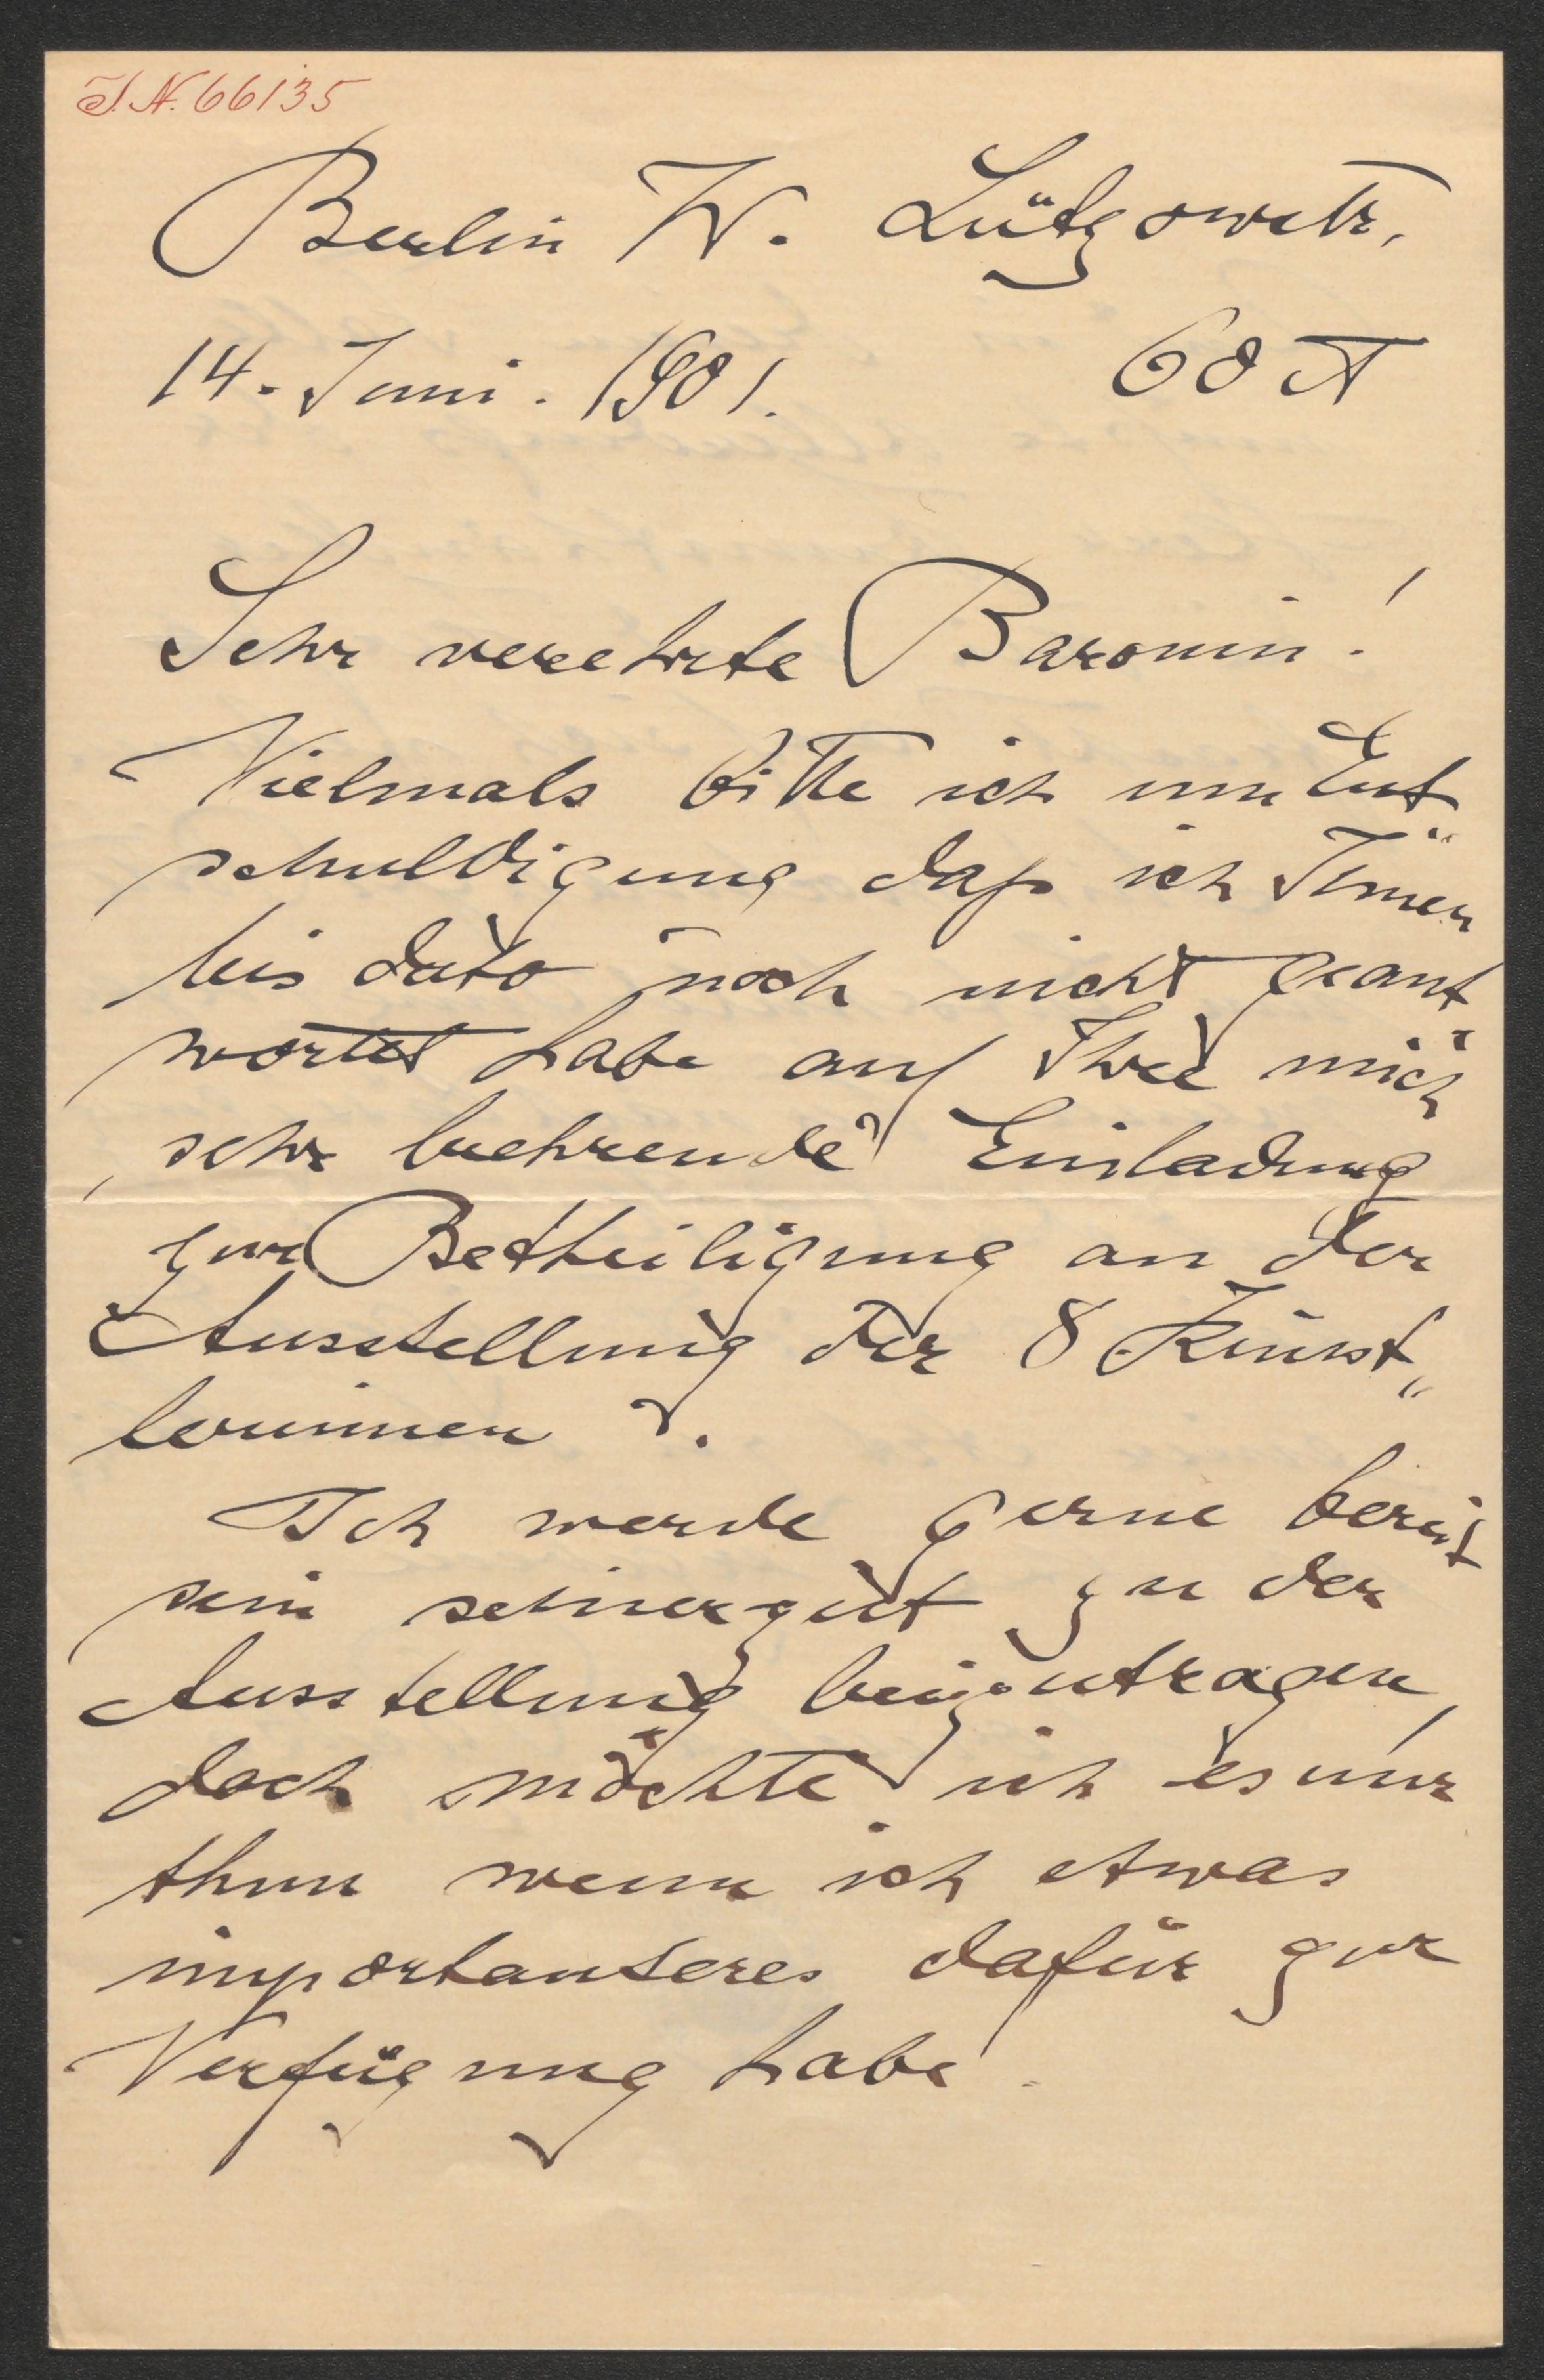 I.N. 66135
Berlin W. Lützowstr.
14. Juni. 1901. 60 A
Sehr verehrte Baronin!
Vielmals bitte ich um Ent"
schuldigung daß ich Ihnen
bis dato noch nicht geant"
wortet habe auf Ihre mich
sehr beehrende Einladung
zur Betheiligung an der
Ausstellung der 8 Künst"
lerinnen.
Ich werde gerne bereit
sein seinerzeit zu der
Ausstellung beizutragen,
doch möchte ich es nur
thun wenn ich etwas
importanteres dafür zur
Verfügung habe.